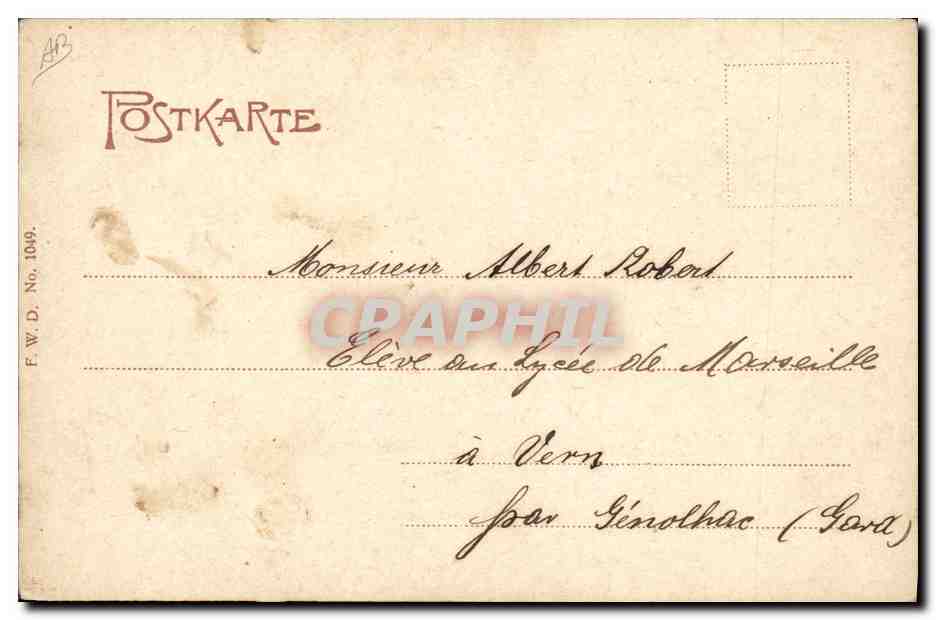 AB
POSTKARTE
F. W. D. No. 1049.
Monsieur Albert Robert
CPAPHIL
Elève au Lycée de Marseille
à Vern
par Génolhac (Gard)